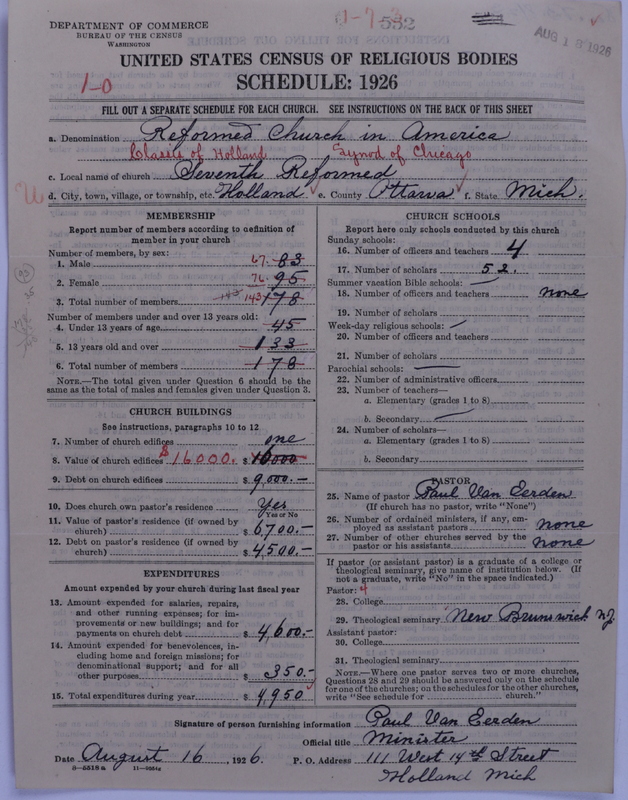 1-7 3 532
DEPARTMENT OF COMMERCE
BUREAU OF THE CENSUS
WASHINGTON
AUG 18 1926
UNITED STATES CENSUS OF RELIGIOUS BODIES
SCHEDULE: 1926
1-0
FILL OUT A SEPARATE SCHEDULE FOR EACH CHURCH. SEE INSTRUCTIONS ON THE BACK OF THIS SHEET
a. Denomination Reformed Church in America
Classis of Holland Synod of Chicago
c. Local name of church Seventh Reformed
d. City, town, village, or township, etc. Holland e. County Ottawa f. State Mich.
MEMBERSHIP
Report number of members according to definition of member in your church
Number of members, by sex:
1. Male 67. 83
2. Female 76. 95
3. Total number of members 143 143 178
Number of members under and over 13 years old:
4. Under 13 years of age 45
5. 13 years old and over 133
6. Total number of members 178
NOTE.—The total given under Question 6 should be the same as the total of males and females given under Question 3.
CHURCH BUILDINGS
See instructions, paragraphs 10 to 12
7. Number of church edifices one
8. Value of church edifices $16000. $ 10,000
9. Debt on church edifices $ 9,000.-
10. Does church own pastor's residence Yes
Yes or No
11. Value of pastor's residence (if owned by church) $ 6700.-
12. Debt on pastor's residence (if owned by church) $ 4,500.-
EXPENDITURES
Amount expended by your church during last fiscal year
13. Amount expended for salaries, repairs, and other running expenses; for improvements or new buildings; and for payments on church debt $ 4,600.-
14. Amount expended for benevolences, including home and foreign missions; for denominational support; and for all other purposes $ 350.-
15. Total expenditures during year $ 4,950
CHURCH SCHOOLS
Report here only schools conducted by this church
Sunday schools:
16. Number of officers and teachers 4
17. Number of scholars 52.
Summer vacation Bible schools:
18. Number of officers and teachers none
19. Number of scholars
Week-day religious schools:
20. Number of officers and teachers
21. Number of scholars
Parochial schools:
22. Number of administrative officers
23. Number of teachers—
a. Elementary (grades 1 to 8)
b. Secondary
24. Number of scholars—
a. Elementary (grades 1 to 8)
b. Secondary
PASTOR
25. Name of pastor Paul Van Eerden
(If church has no pastor, write "None")
26. Number of ordained ministers, if any, employed as assistant pastors none
27. Number of other churches served by the pastor or his assistants none
If pastor (or assistant pastor) is a graduate of a college or theological seminary, give name of institution below. (If not a graduate, write "No" in the space indicated.)
Pastor: 4
28. College
29. Theological seminary New Brunswick NJ.
Assistant pastor:
30. College
31. Theological seminary
NOTE.—Where one pastor serves two or more churches, Questions 28 and 29 should be answered only on the schedule for one of the churches; on the schedules for the other churches, write "See schedule for church."
Signature of person furnishing information Paul Van Eerden
Official title Minister
Date August 16, 1926. P. O. Address 111 West 14th Street
8—5518 a 11—9554
Holland Mich